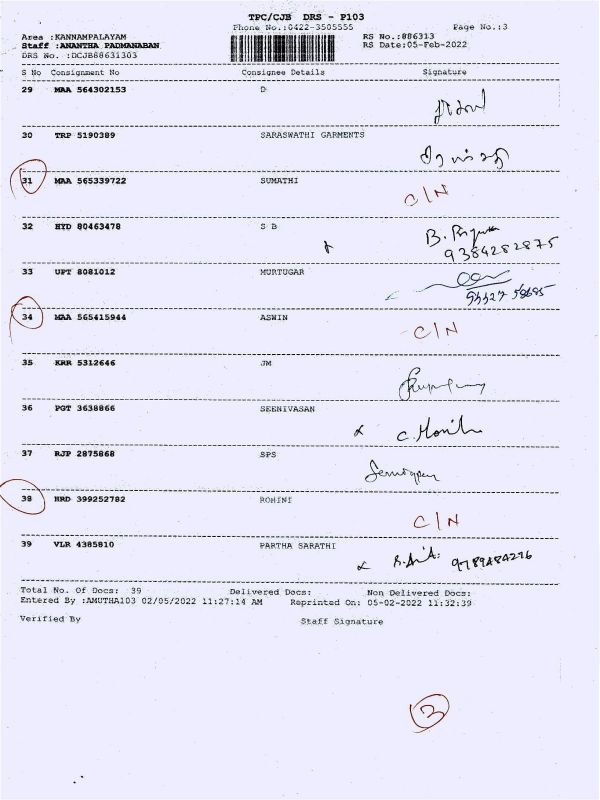 TPC/CJB DRS - P103
Phone No.:0422-3505555 Page No.:3
Area :KANNAMPALAYAM RS No.:886313
Staff :ANANTHA PADMANABAN RS Date:05-Feb-2022
DRS No. :DCJB88631303
S No Consignment No Consignee Details Signature
29 MAA 564302153 D
30 TRP 5190389 SARASWATHI GARMENTS
31 MAA 565339722 SUMATHI C/N
32 HYD 80463478 S B B.
9384282875
33 UPT 8081012 MURTUGAR
34 MAA 565415944 ASWIN C/N
35 KRR 5312646 JM
36 PGT 3638866 SEENIVASAN C.
37 RJP 2875868 SPS
38 HRD 399252782 ROHINI C/N
39 VLR 4385810 PARTHA SARATHI
Total No. Of Docs: 39 Delivered Docs: Non Delivered Docs:
Entered By :AMUTHA103 02/05/2022 11:27:14 AM Reprinted On: 05-02-2022 11:32:39
Verified By Staff Signature
3